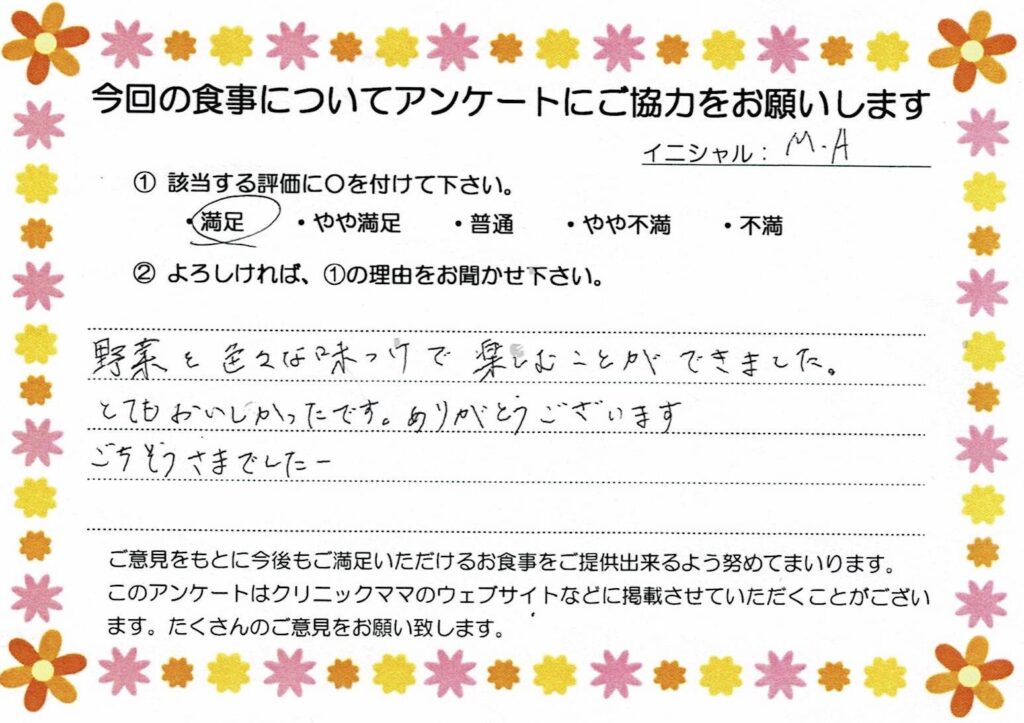 今回の食事についてアンケートにご協力をお願いします
イニシャル： M.A
① 該当する評価に〇を付けて下さい。
・満足 ・やや満足 ・普通 ・やや不満 ・不満
② よろしければ、①の理由をお聞かせ下さい。
野菜を色々な味つけで楽しむことができました。
とてもおいしかったです。ありがとうございます
ごちそうさまでしたー
ご意見をもとに今後もご満足いただけるお食事をご提供出来るよう努めてまいります。
このアンケートはクリニックママのウェブサイトなどに掲載させていただくことがござい
ます。たくさんのご意見をお願い致します。